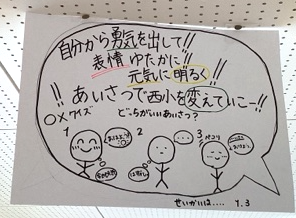 自分から勇気を出して!!
表情 ゆたかに!!
元気に明るく!!
!!あいさつで西小を変えていこー!!
○×クイズ
どちらがいいあいさつ?
1 2 3
ペコリ
せいかいは.... 1.3